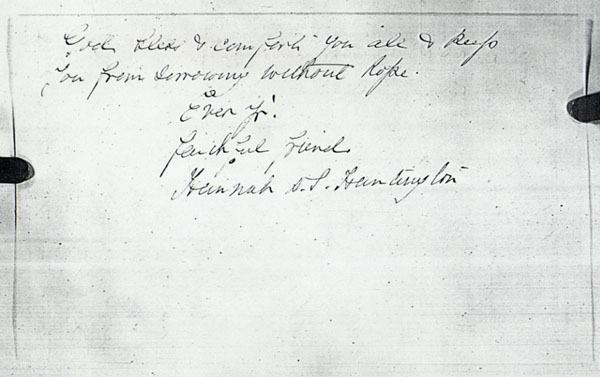 God bless & comfort you all & keep
you from sorrowing without hope.
Ever yr.
faithful friend
Hannah S. Huntington